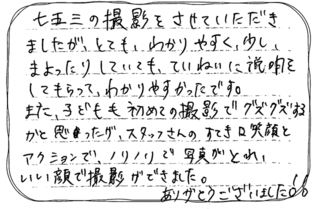 七五三の撮影をさせていただき
ましたが、とても、わかりやすく、少し、
まよったりしていても、ていねいに説明を
してもらって、わかりやすかったです。
また、子どもも初めての撮影でグズグズする
かと思ったが、スタッフさんの、すてきな笑顔と
アクションで、ノリノリで写真がとれ、
いい顔で撮影ができました。
ありがとうございました